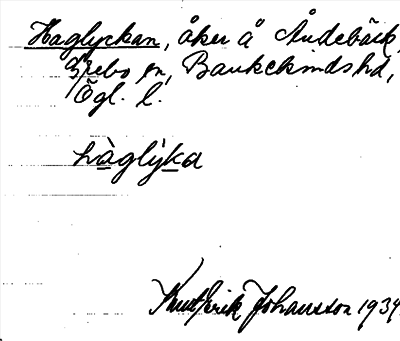 Haglyckan, åker å Åndebäck,
Grebo sn, Bankekinds hd,
Ögl. l.
hàglýka
Knut Erik Johansson 1934.